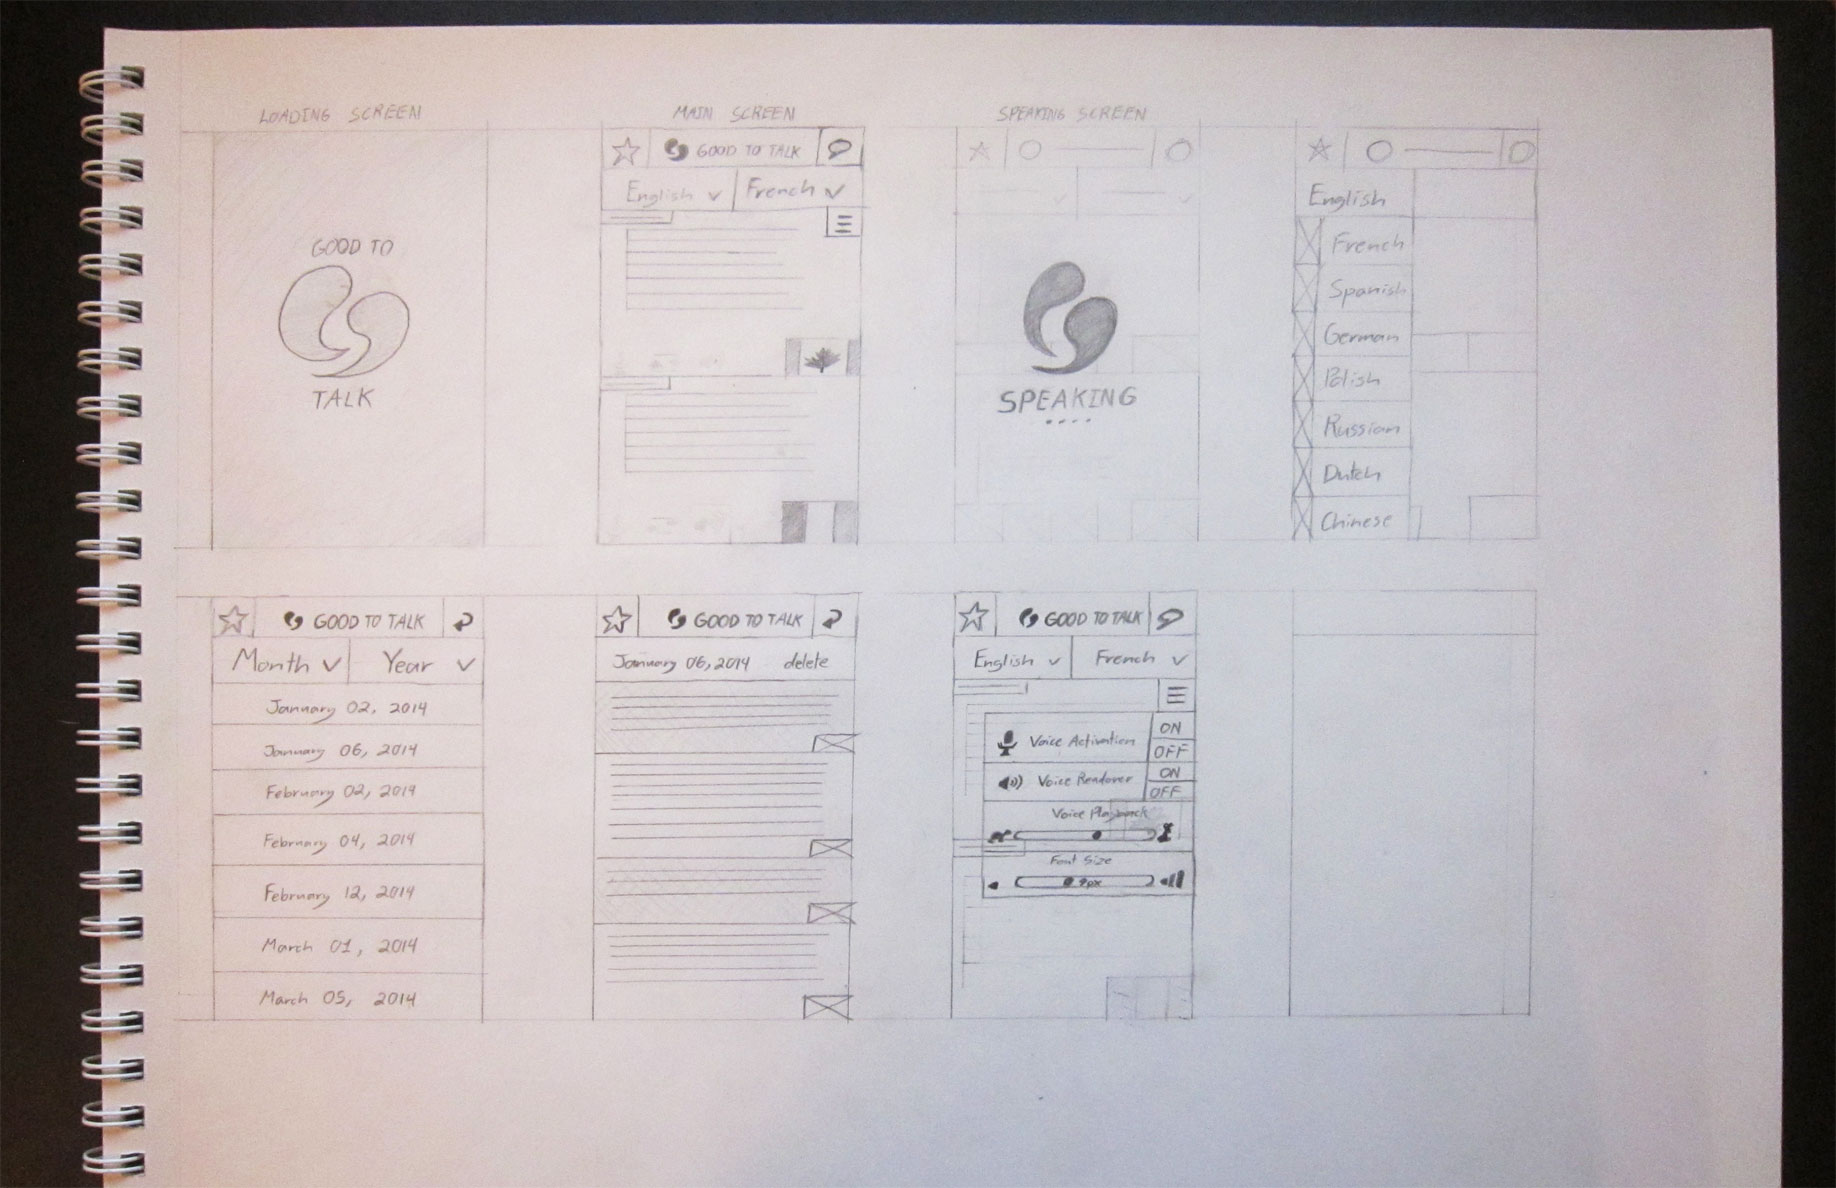 LOADING SCREEN
GOOD TO
TALK
MAIN SCREEN
GOOD TO TALK
English French
SPEAKING SCREEN
SPEAKING
....
English
French
Spanish
German
Polish
Russian
Dutch
Chinese
GOOD TO TALK
Month Year
January 02, 2014
January 06, 2014
February 02, 2014
February 04, 2014
February 12, 2014
March 01, 2014
March 05, 2014
GOOD TO TALK
January 06, 2014 delete
GOOD TO TALK
English French
Voice Activation ON
OFF
Voice Readover ON
OFF
Voice Playback
Font Size
9px